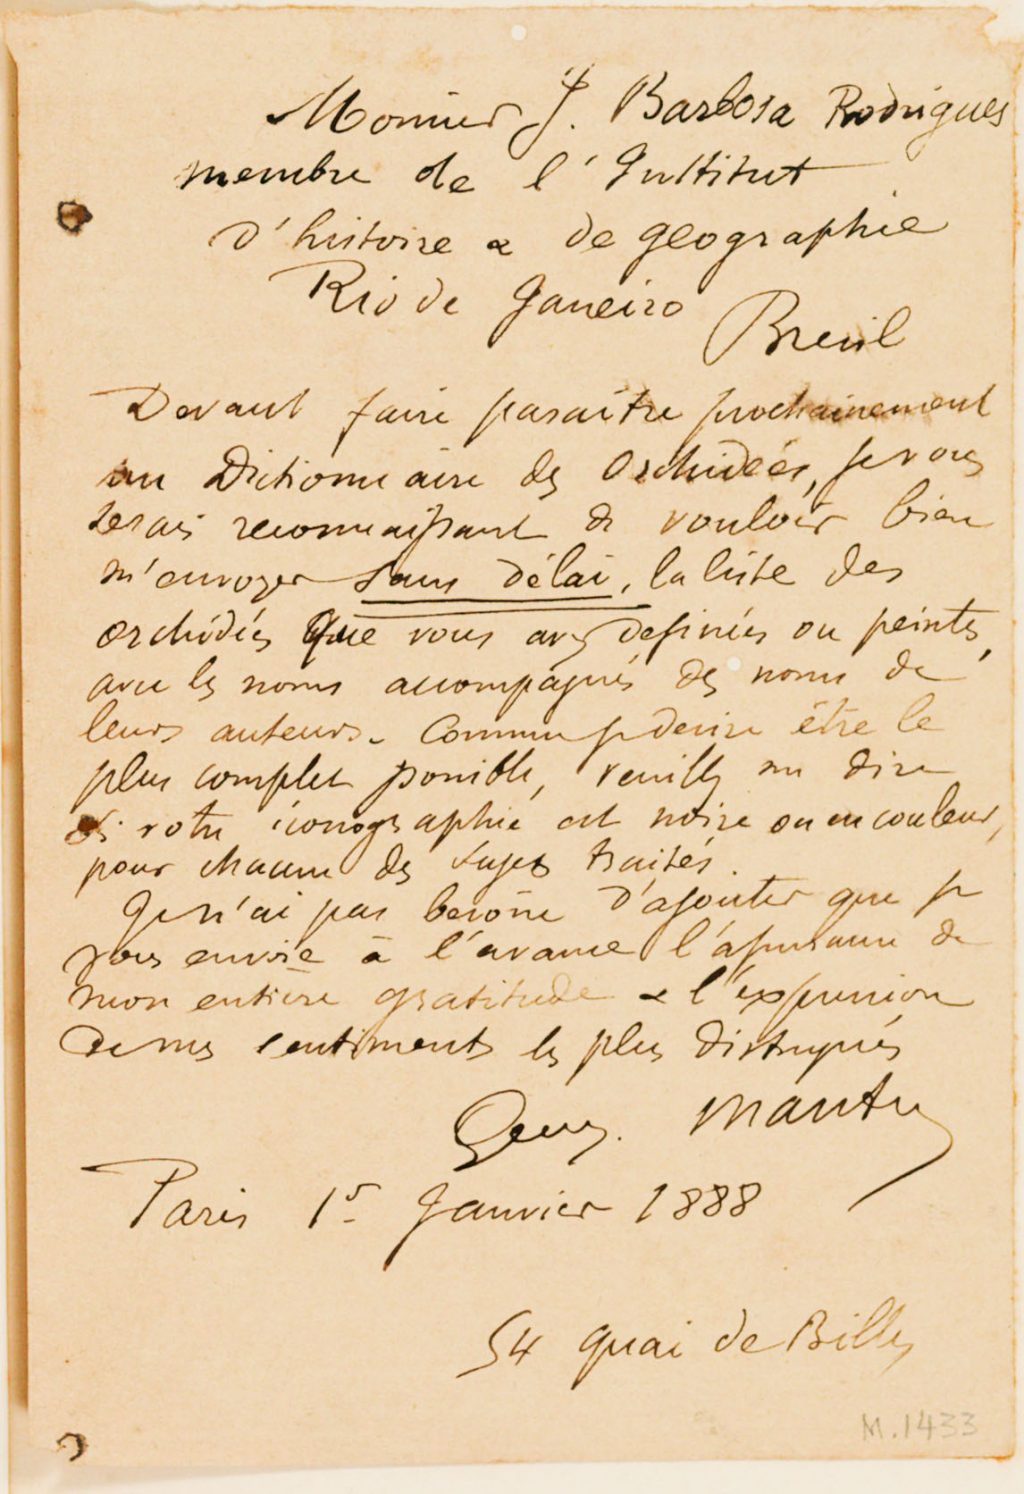 Monsieur J. Barbosa Rodrigues
membre de l'Institut
d'histoire & de geographie
Rio de Janeiro
Bresil
Devant faire paraître prochainement
un Dictionnaire des Orchidées, je vous
serais reconnaissant de vouloir bien
m'envoyer sans délai, la liste des
orchidées que vous avez dessinées ou peintes,
avec les noms accompagnés des noms de
leurs auteurs. Comme je desire être le
plus complet possible, veuillez me dire
si votre iconographie est noire ou en couleur,
pour chacun des sujets traités.
Je n'ai pas besoin d'ajouter que je
vous envoie à l'avance l'assurance de
mon entière gratitude & l'expression
de mes sentiments les plus distingués
Mantin
Paris 1r Janvier 1888
54 quai de Billy
M.1433